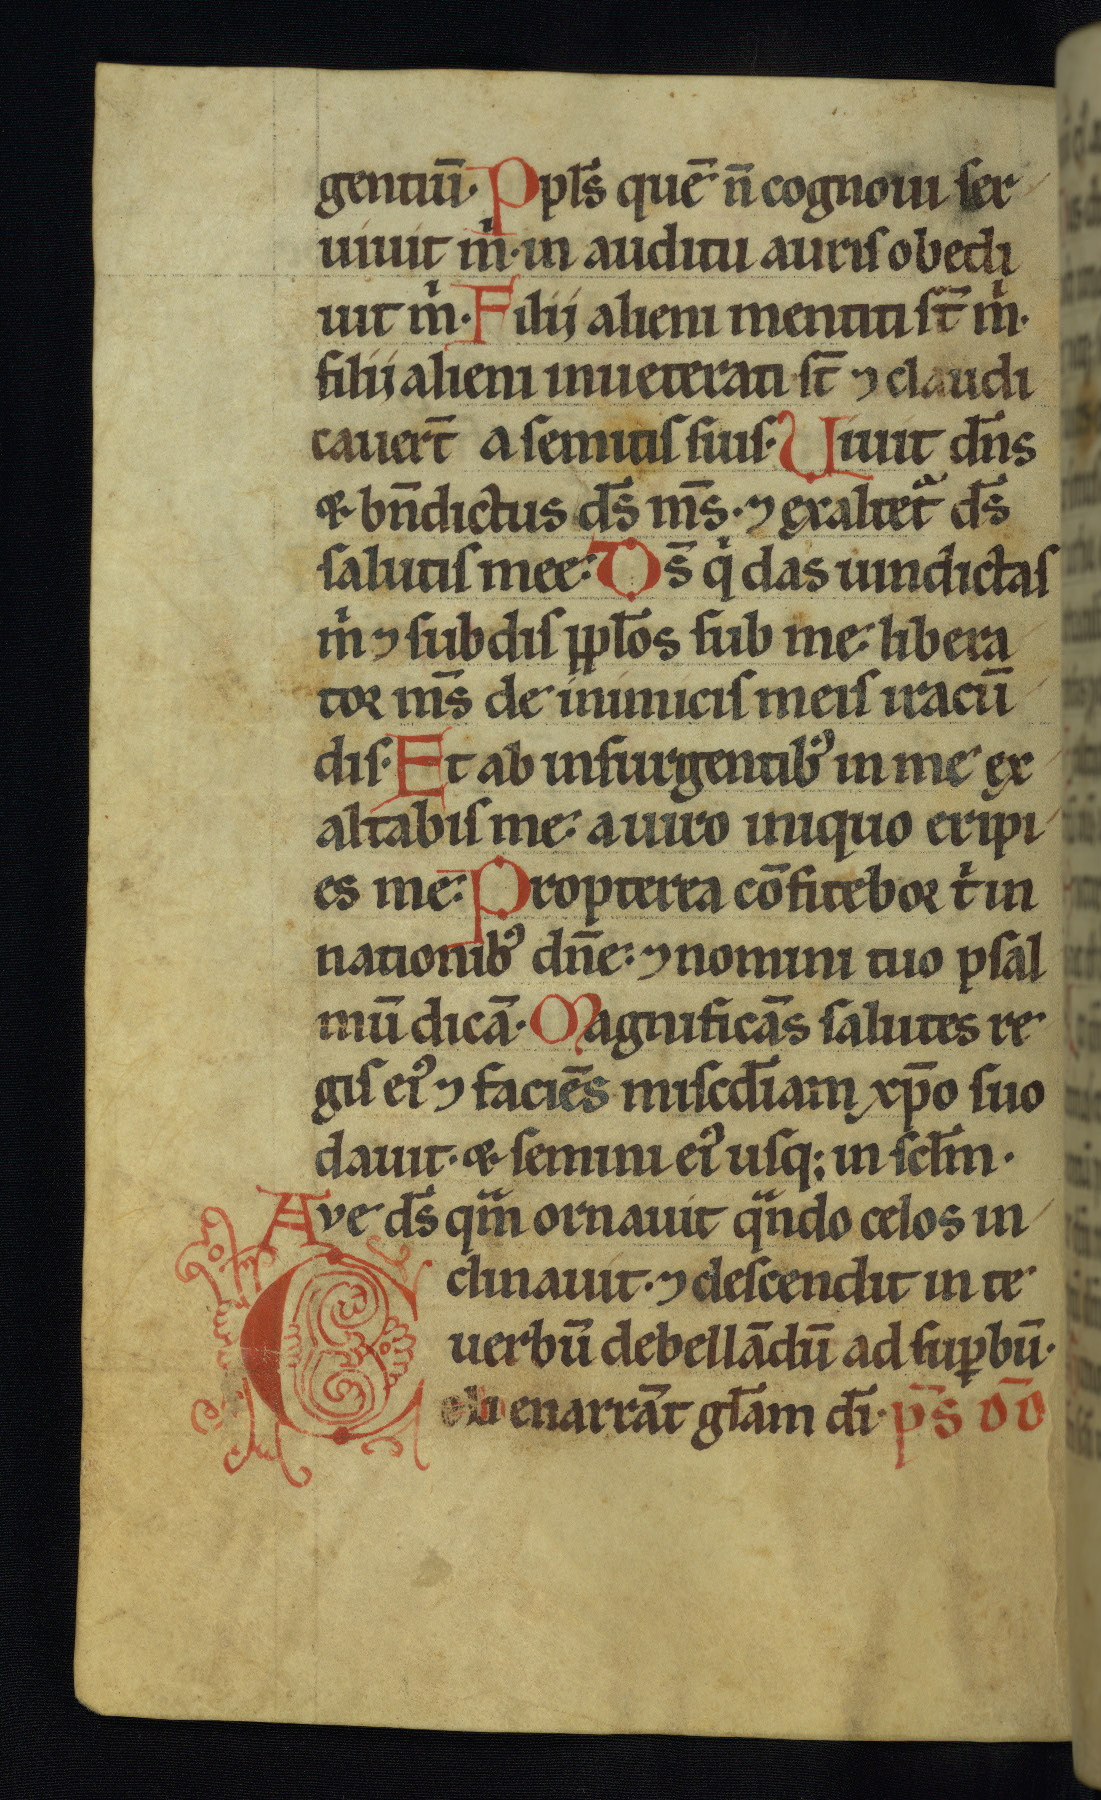 gentiū. Ppl̄s quē n̄ cognoui ser
uiuit m̍. in auditu auris obedi
uit m̍. Filii alieni mentiti st̄ m̍.
filii alieni inueterati st̄ ⁊ claudi
cauert̄ a semitis suis. Uiuit dn̄s
& bn̄dictus ds̄ ms̄. ⁊ exaltet᷑ ds̄
salutis mee: Ds̄ qi das uindictas
m̍ ⁊ subdis ppl̄os sub me: libera
tor ms̄ de inimicis meis iracū
dis. Et ab insurgentibꝰ in me ex
altabis me: a uiro iniquo eripi
es me: Propterea cōfitebor t̍ in
nationibꝰ dn̄e: ⁊ nomini tuo psal
mū dicā. Magnificās salutes re
gis eiꝰ ⁊ faciēs miscdīam xp̄o suo
dauit. & semini eiꝰ usq; in scl̄m.
Aue ds̄ qm̄ ornauit qͣndo celos in
clinauit. ⁊ descendit in te
uerbū debellādū ad suꝑbū.
Celi enarrāt gl̄am dī. ps̄ dd̄